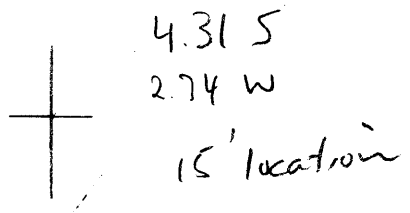 4.31 S
2.74 W
15' location